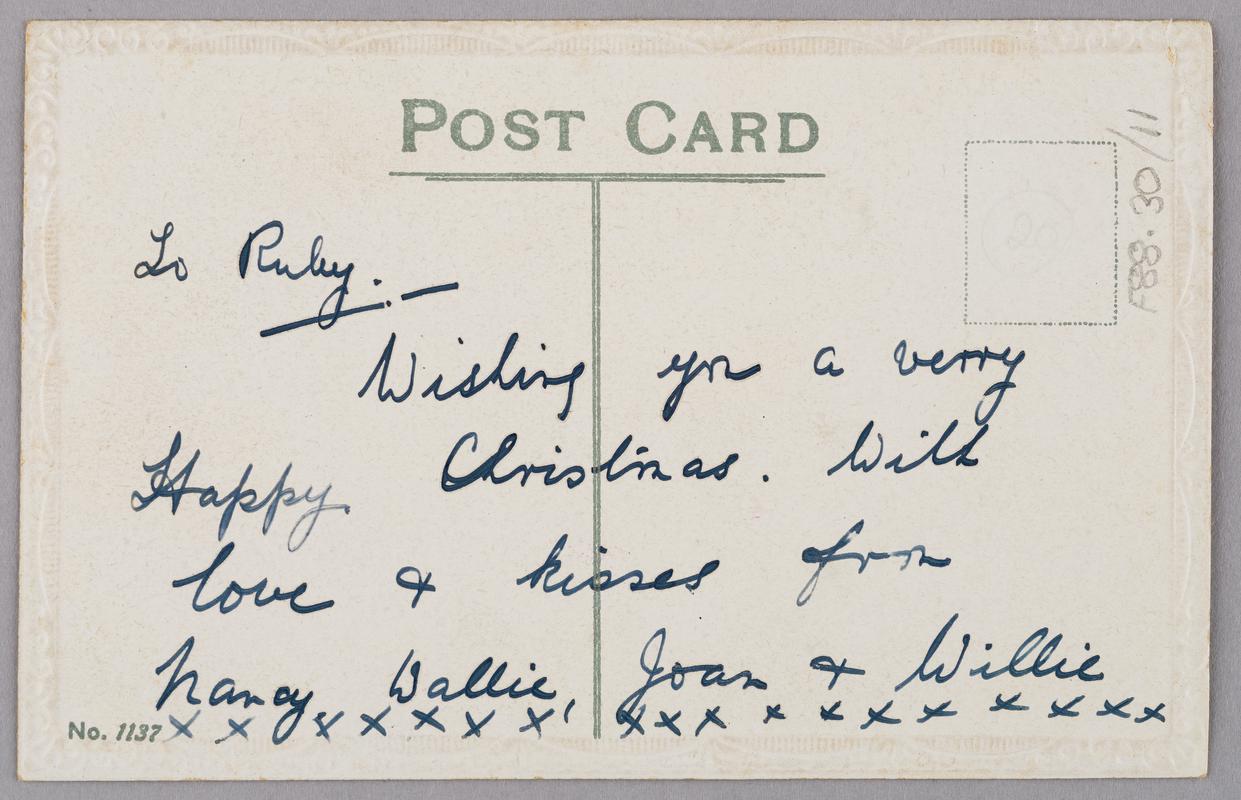 POST CARD
To Ruby. —
Wishing you a verry
Happy Christmas. With
love & kisses from
Nancy, Wallie, Joan & Willie
x x x x x x x x x x x x x x x x x x
No. 1137
F88.30/11
20